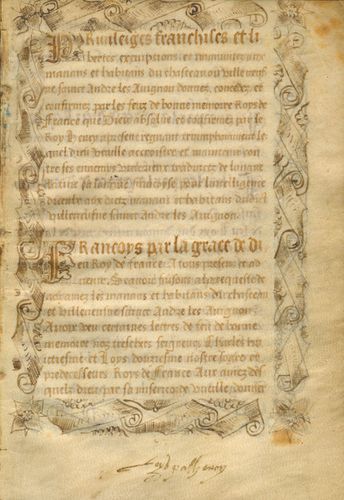 Privileiges franchises et li
bertez exemptions et immunitez aux
manans et habitans du chasteau ou ville neufve
sainct Andre les Avignon donnez concedez et
confirmez par les feuz de bonne memoire Roys de
France que Dieu absolve et confirmez par le
Roy Henry a present regnant triumphamment le
quel dieu veuille accroistre et maintenir con
tre ses ennemys traduictz de langue
latine en francoyse pour intelligence
aux dictz manans et habitans dudict
Villeneufve sainct Andre les Avignon
Francoys par la grace de di
eu Roy de france A tous presens et ad
venir Scavoir faisons a la requeste de
noz amez les manans et habitans du chasteau
et Villeneufve sainct Andre les Avignon
Avoir veu certaines lectres de feu de bonne
memoire noz treschers seigneurs Charles hui
ctiesme et Loys douziesme nostre sogre et
predecesseurs Roys de France Aux quelz des
quelz dieu par sa misericorde veuille donner